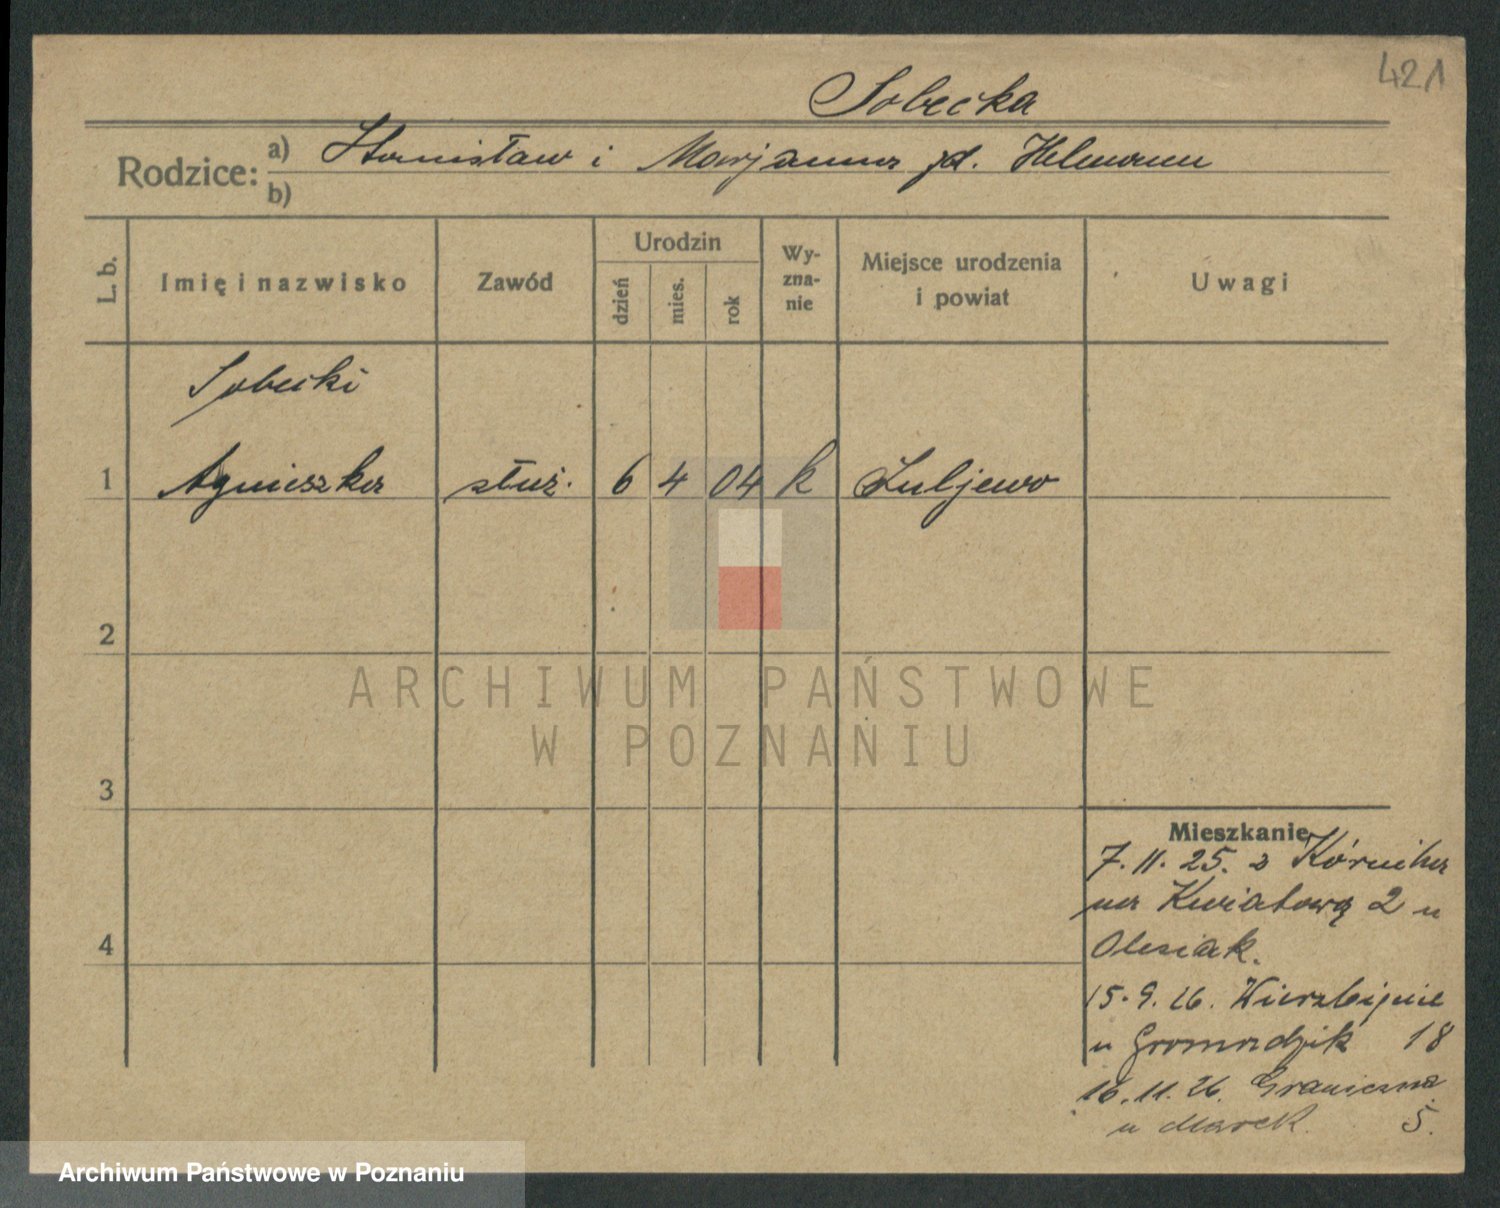 421
Sobecka
Rodzice: a) Stanisław i Marjanna
b)
L. b.
Imię i nazwisko
Zawód
Urodzin
dzień
mies.
rok
Wy-
zna-
nie
Miejsce urodzenia
i powiat
Uwagi
Sobecki
1 Agnieszka służ. 6 4 04 k Luljewo
2
3
4
Mieszkanie
7. 11. 25. z Kórnika
na Kwiatową 2 u
Olesiak.
15. 9. 26. Wierzbięcice
u Gromadzik 18
16. 11. 26. Graniczna
u Marek. 5.
ARCHIWUM PAŃSTWOWE
W POZNANIU
Archiwum Państwowe w Poznaniu